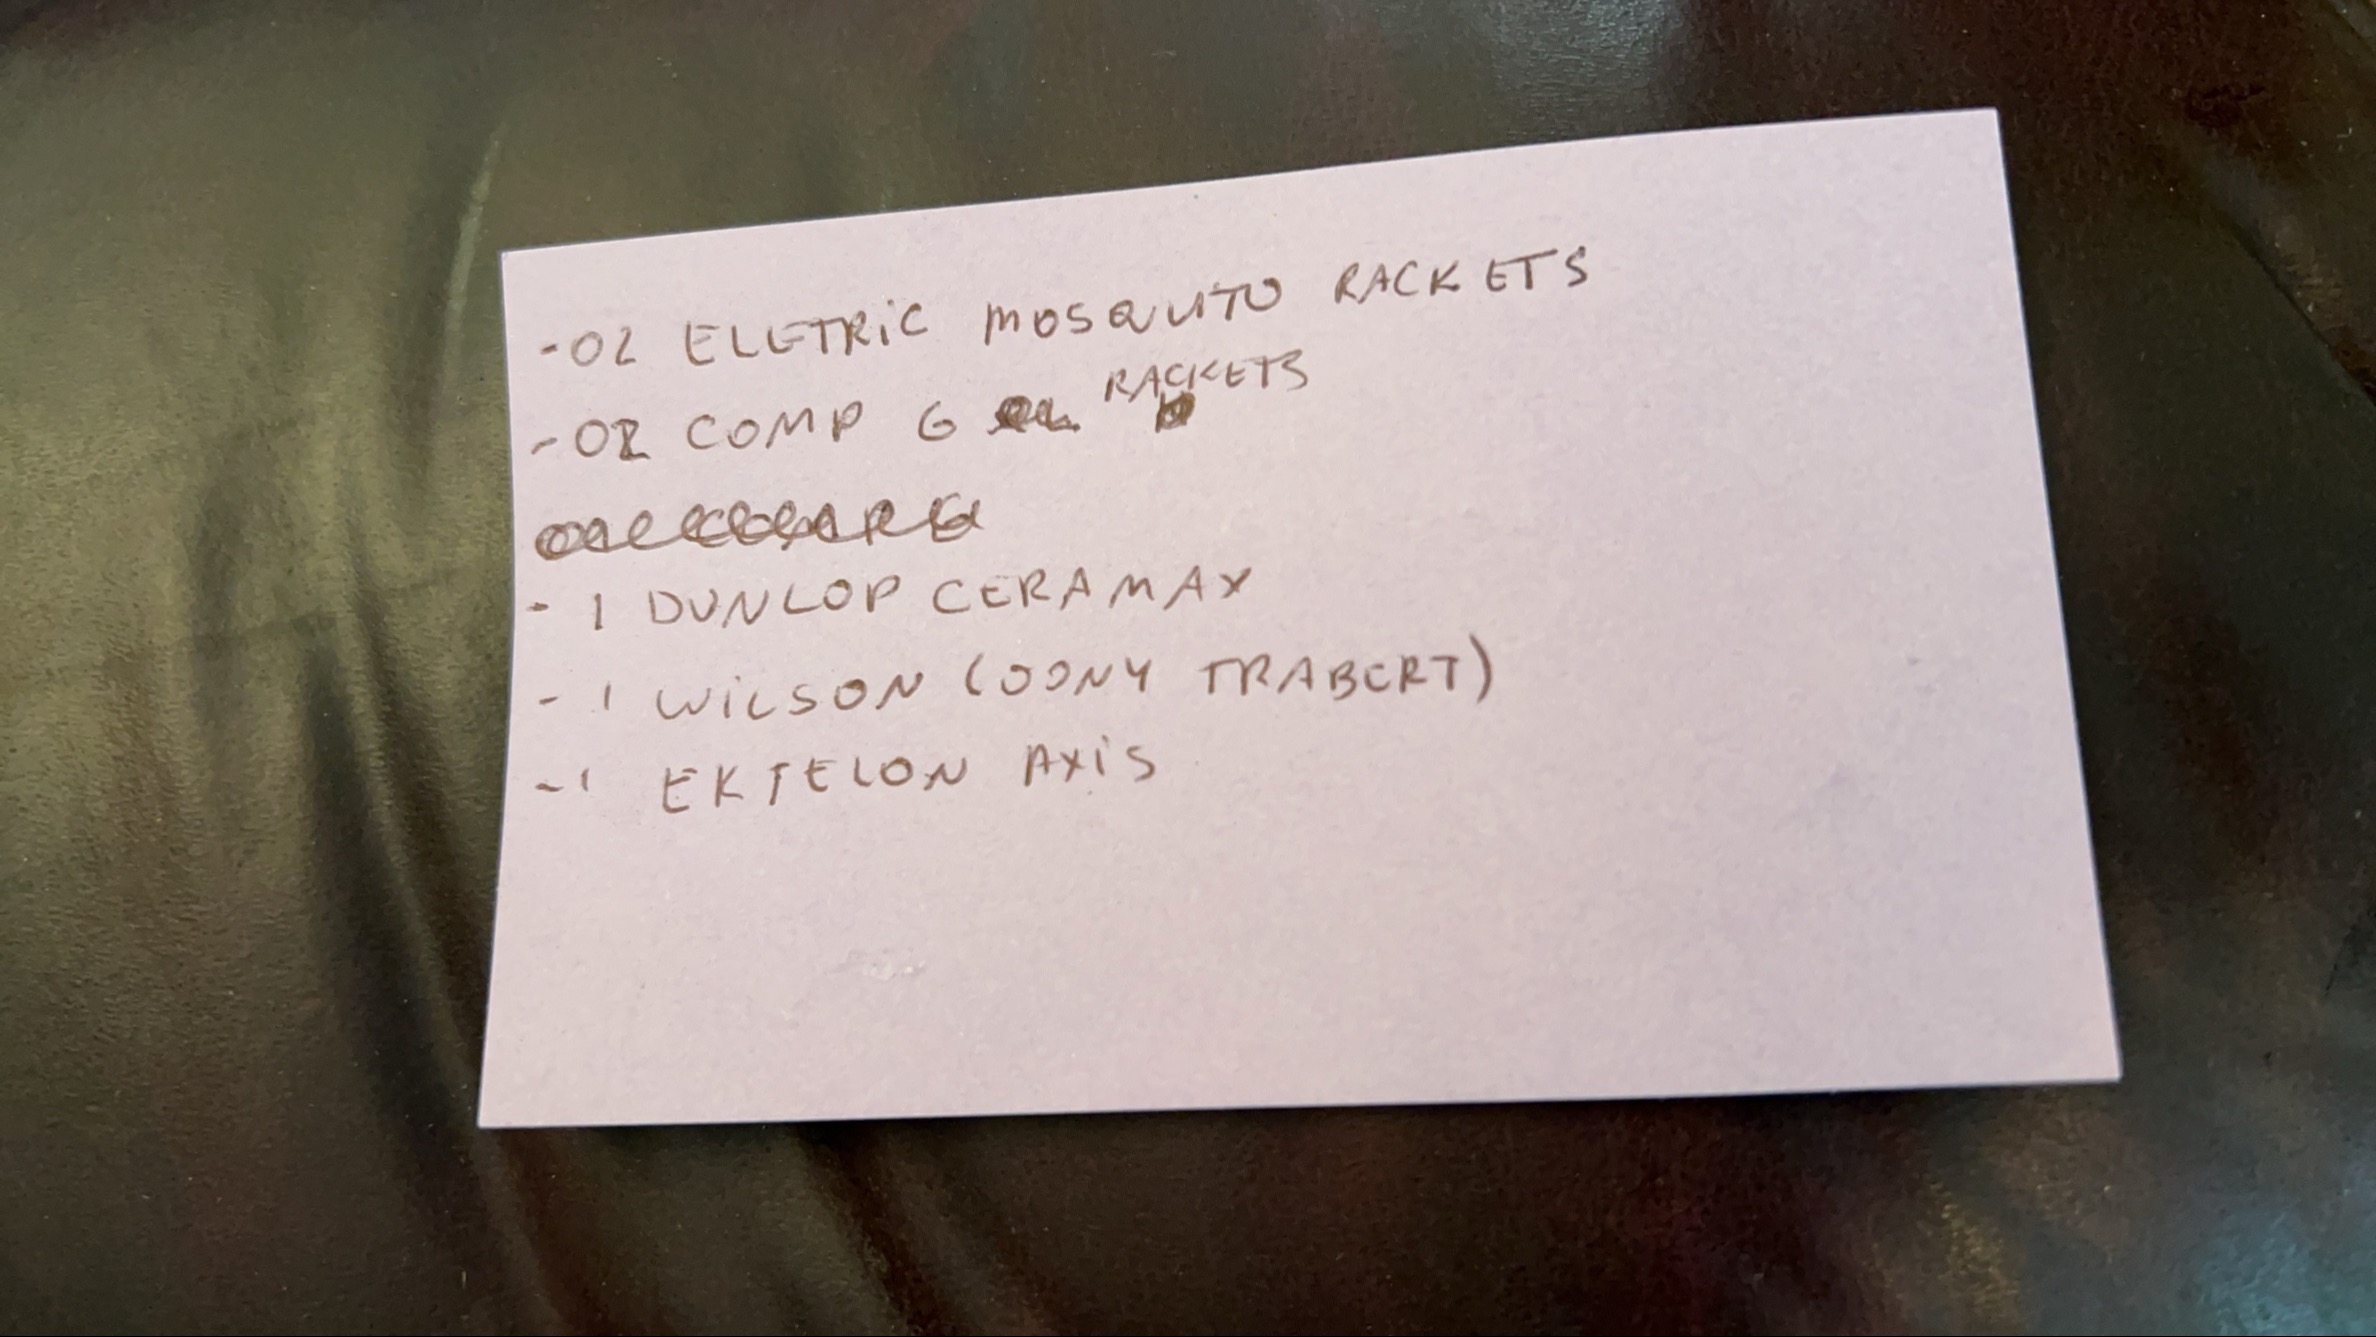 -02 ELETRIC MOSQUITO RACKETS
-02 COMP G RACKETS
- 1 DUNLOP CERAMAX
- 1 WILSON (JONY TRABERT)
-1 EKTELON AXIS